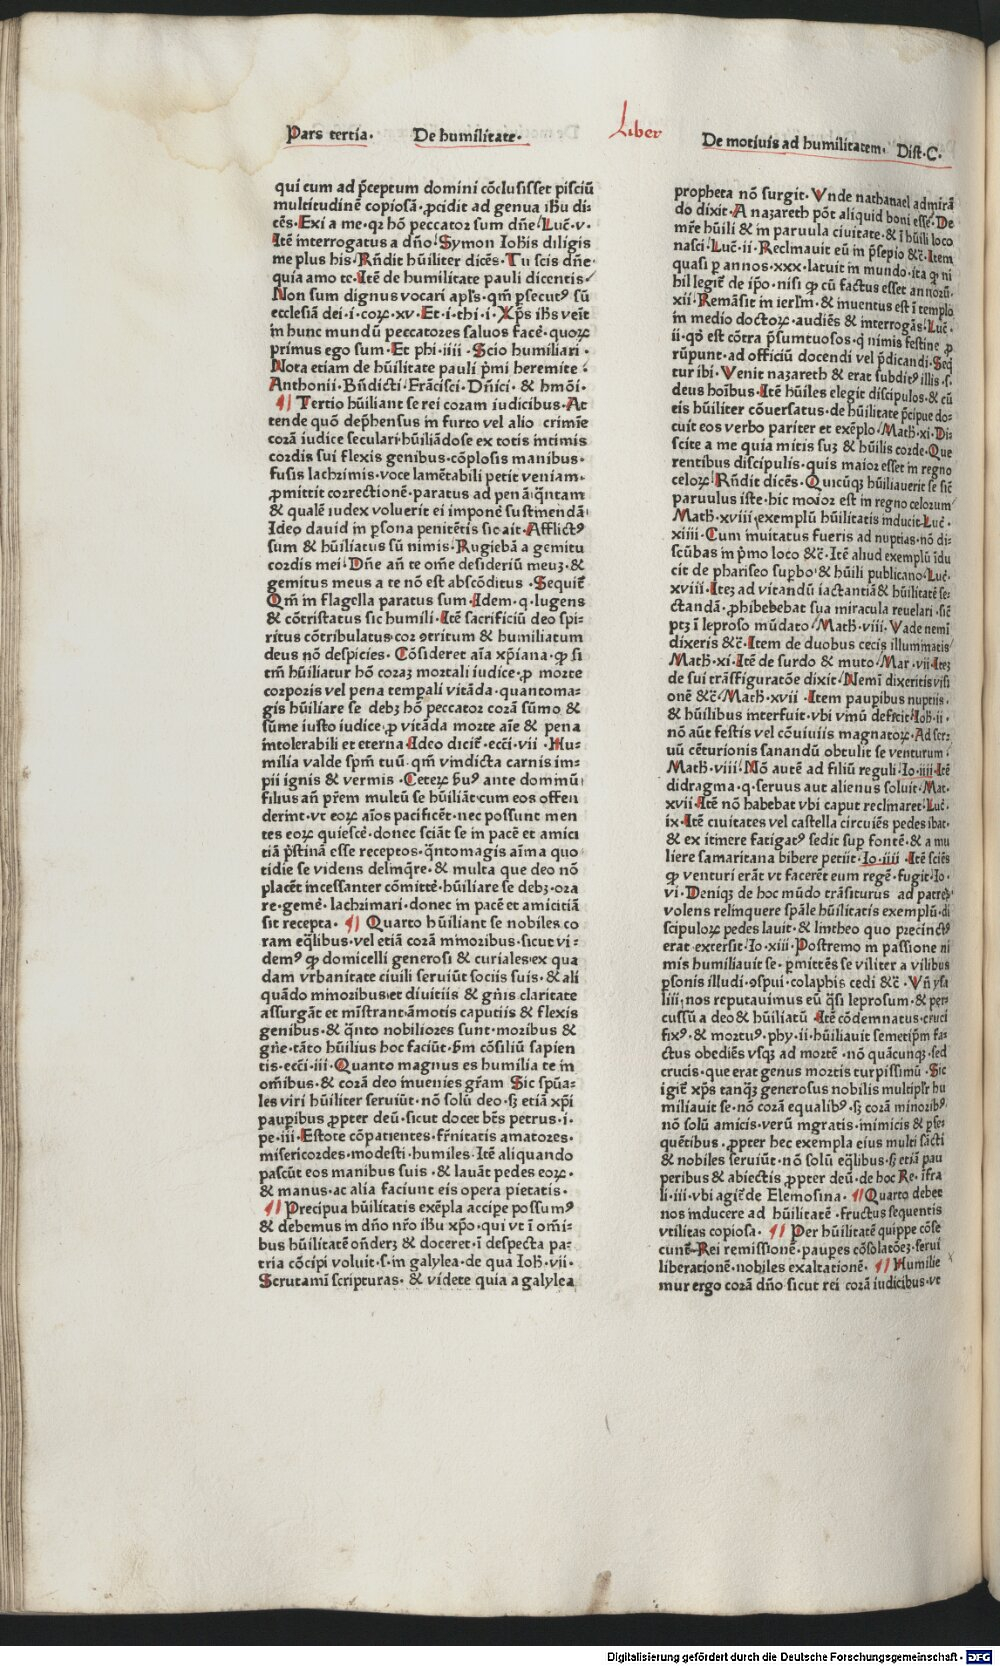 Pars tertia. De humilitate. Liber De motiuis ad humilitatem. Dist. C.
qui cum ad p̄ceptum domini cōclusisset pisciū
multitudinē copiosā. ꝓcidit ad genua ih̄u di-
cēs. Exi a me. qꝛ hō peccator sum dn̄e. Luc̄. v.
Itē interrogatus a dn̄o. Symon Ioh̄is diligis
me plus his. Rn̄dit hūiliter dicēs. Tu scis dn̄e.
quia amo te. Itē de humilitate pauli dicentis
Non sum dignus vocari apl̄s. qm̄ ꝑsecutꝰ sū
ecclesiā dei. i. coꝝ. xv. Et. i. thi. i. Xp̄s ih̄s veīt
in hunc mundū peccatores saluos facē. quoꝝ
primus ego sum. Et phi. iiii. Scio humiliari.
Nota etiam de hūilitate pauli p̄mi heremite.
Anthonii. Bn̄dicti. Frācisci. Dn̄ici. & hmōi.
¶ Tertio hūiliant se rei coram iudicibus. At
tende quō dep̄hensus in furto vel alio crimīe
corā iudice seculari. hūiliādose ex totis intimis
cordis sui flexis genibus. cōplosis manibus.
fusis lachrimis. voce lamētabili petit veniam.
ꝓmittit correctionē. paratus ad penā q̄ntam
& qualē iudex voluerit ei imponē sustinendā.
Ideo dauid in ꝑsona penitētis sic ait. Afflictꝰ
sum & hūiliatus sū nimis. Rugiebā a gemitu
cordis mei. Dn̄e an̄ te om̄e desideriū meuꝫ. &
gemitus meus a te nō est abscōditus. Sequit̄
Qm̄ in flagella paratus sum. Idem. q. lugens
& cōtristatus sic humili. Itē sacrificiū deo spi-
ritus cōtribulatus. cor ꝯtritum & humiliatum
deus nō despicies. Cōsideret aīa xp̄iana. ꝙ si
tm̄ hūiliatur hō coraꝫ mortali iudice. ꝓ morte
corporis vel pena temp̱ali vitāda. quantoma-
gis hūiliare se debꝫ hō peccator corā sūmo &
sūme iusto iudice. ꝓ vitāda morte aīe & pena
intolerabili et eterna. Ideo dicit̄. ecci. vii. Hu-
milia valde spm̄ tuū. qm̄ vindicta carnis im-
pii ignis & vermis. Ceteꝝ ẜuꝰ ante dominū
filius an̄ pr̄em multū se hūiliāt cum eos offen
derint. vt eoꝝ aīos pacificēt. nec possunt men
tes eoꝝ quiescē. donec sciāt se in pacē et amici
tiā p̄stinā esse receptos. q̄ntomagis aīma quo
tidie se videns delinq̄re. & multa que deo nō
placēt incessanter cōmittē. hūiliare se debꝫ. ora
re. gemē. lachrimari. donec in pacē et amicitiā
sit recepta. ¶ Quarto hūiliant se nobiles co
ram eq̄libus. vel etiā corā minoribus. sicut vi-
demꝰ ꝙ domicelli generosi & curiales. ex qua
dam vrbanitate ciuili seruiūt sociis suis. & ali
quādo minoribus. et diuitiis & gn̄is claritate
assurgāt et mīstrant. amotis caputiis & flexis
genibus. & q̄nto nobiliores sunt. moribus &
gn̄e. tāto hūilius hoc faciūt. ẜm cōsiliū sapien
tis. ecci. iii. Quanto magnus es humilia te in
om̄ibus. & corā deo inuenies gr̄am. Sic sp̄ua-
les viri hūiliter seruiūt. nō solū deo. sꝫ etiā xp̄i
paup̱ibus ꝓpter deū. sicut docet bēs petrus. i.
pe. iii. Estote cōpatientes. fr̄nitatis amatores.
misericordes. modesti. humiles. Itē aliquando
pascūt eos manibus suis. & lauāt pedes eoꝝ.
& manus. ac alia faciunt eis opera pietatis.
¶ Precipua hūilitatis exēpla accipe possumꝰ
& debemus in dn̄o nr̄o ih̄u xp̄o. qui vt ī om̄i-
bus hūilitatē on̄dereꝫ & doceret. ī despecta pa-
tria cōcipi voluit. s. in galylea. de qua Ioh̄. vii.
Scrutamī scripturas. & videte quia a galylea
propheta nō surgit. Vnde nathanael admirā
do dixit. A nazareth pōt aliquid boni esse. De
mr̄e hūili & in paruula ciuitate. & ī hūili loco
nasci. Luc̄. ii. Reclinauit eū in p̄sepio &c̄. Item
quasi ꝑ annos. xxx. latuit in mundo. ita ꝙ ni
hil legit̄ de ip̄o. nisi ꝙ cū factus esset annorū.
xii. Remāsit in ierl̄m. & inuentus est ī templo
in medio doctoꝝ. audiēs & interrogās. Luc̄.
ii. qō est cōtra p̄sumtuosos. q̇ nimis festine ꝓ
rūpunt. ad officiū docendi vel p̄dicandi. Seq̄
tur ibi. Venit nazareth & erat subditꝰ illis. s.
deus hoībus. Itē hūiles elegit discipulos. & cū
eis hūiliter cōuersatus. de hūilitate p̄cipue do-
cuit eos verbo pariter et exēplo. Math̄. xi. Di-
scite a me quia mitis suꝫ & hūilis corde. Que
rentibus discipulis. quis maior esset in regno
celoꝝ. Rn̄dit dicēs. Quicūqꝫ hūiliauerit se sic̄
paruulus iste. hic moior est in regno celorum
Math̄. xviii. exemplū hūilitatis inducit. Luc̄.
xiiii. Cum inuitatus fueris ad nuptias. nō di-
scūbas in p̄mo loco &c̄. Itē aliud exemplū īdu
cit de phariseo sup̱bo. & hūili publicano. Luc̄.
xviii. Iteꝫ ad vitandū iactantiā & hūilitatē se-
ctandā. ꝓhibebebat sua miracula reuelari. sic̄
ptꝫ ī leproso mūdato. Math̄. viii. Vade nemī
dixeris &c̄. Item de duobus cecis illuminatis
Math̄. xi. Itē de surdo & muto. Mar. vii. Iteꝫ
de sui trāsfiguratōe dixit. Nemī dixeritis visi
onē &c̄. Math̄. xvii. Item paup̱ibus nuptiis.
& hūilibus interfuit. vbi vinū defecit. Ioh̄. ii.
nō aūt festis vel cōuiuiis magnatoꝝ. Ad ser-
uū cēturionis sanandū obtulit se venturum.
Math̄. viii. Nō autē ad filiū reguli. Io. iiii. Itē
didragma. q. seruus aut alienus soluit. Mat.
xvii. Itē nō habebat vbi caput reclinaret. Luc̄.
ix. Itē ciuitates vel castella circuiēs pedes ibat.
& ex itinere fatigatꝰ sedit sup̱ fontē. & a mu
liere samaritana bibere petiit. Io. iiii. Itē sciēs
ꝙ venturi erāt vt facerēt eum regē. fugit. Io.
vi. Deniqꝫ de hoc mūdo trāsiturus ad patreꝫ
volens relinquere sp̄ale hūilitatis exemplū. di
scipuloꝝ pedes lauit. & lintheo quo precinctꝰ
erat extersit. Io. xiii. Postremo in passione ni
mis humiliauit se. ꝑmittēs se viliter a vilibus
ꝑsonis illudi. ꝯspui. colaphis cedi &c̄. Vn̄ ysa
liii. nos reputauimus eū q̄si leprosum. & ꝑcus
cussū a deo & hūiliatū. Itē cōdemnatus. cruci
fixꝰ. & mortuꝰ. phy. ii. hūiliauit semetip̄m fa-
ctus obediēs vsqꝫ ad mortē. nō quācunqꝫ. sed
crucis. que erat genus mortis turpissimū. Sic
igit̄ xp̄s tanqꝫ generosus nobilis multip̱l̄r hu
miliauit se. nō corā equalibꝰ. sꝫ corā minoribꝰ.
nō solū amicis. verū ingratis. inimicis & ꝑse-
quētibus. ꝓpter hec exempla eius multi sācti
& nobiles seruiūt. nō solū eq̄libus. sꝫ etiā pau
peribus & abiectis ꝓpter deū. de hoc Re. īfra
li. iii. vbi agit̄ de Elemosina. ¶ Quarto debet
nos inducere ad hūilitatē. fructus sequentis
vtilitas copiosa. ¶ Per hūilitatē quippe cōse
cunt̄. Rei remissionē. paup̱es cōsolatōeꝫ. serui
liberationē. nobiles exaltationē. ¶ Humilie
mur ergo corā dn̄o sicut rei corā iudicibus. vt
Digitalisierung gefördert durch die Deutsche Forschungsgemeinschaft - DFG